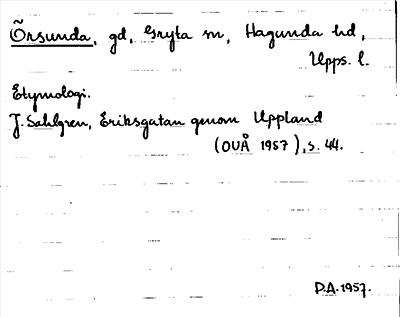 Örsunda, gd, Gryta sn, Hagunda hd,
Upps. l.
Etymologi.
J. Sahlgren, Eriksgatan genom Uppland
(OUÅ 1957), s. 44.
D.A. 1957.